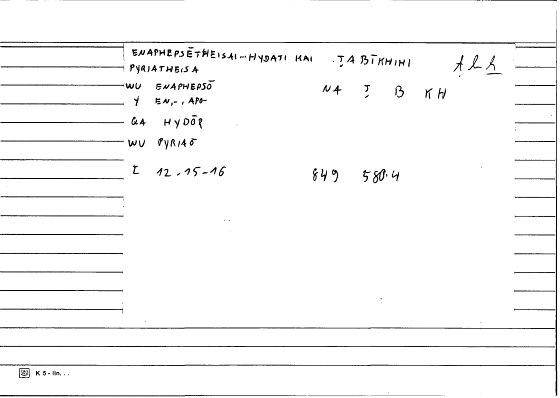 ENAPHEPSĒTHEISAI -- HYDATI KAI ṬABĪKHIHI
PYRIATHEISA
WU ENAPHEPSŌ NA Ṭ B KH
Y EN,-, APO-
QA HYDŌR
WU PYRIAŌ
I 12.15-16 849 580.4
K 5 - lin. . .